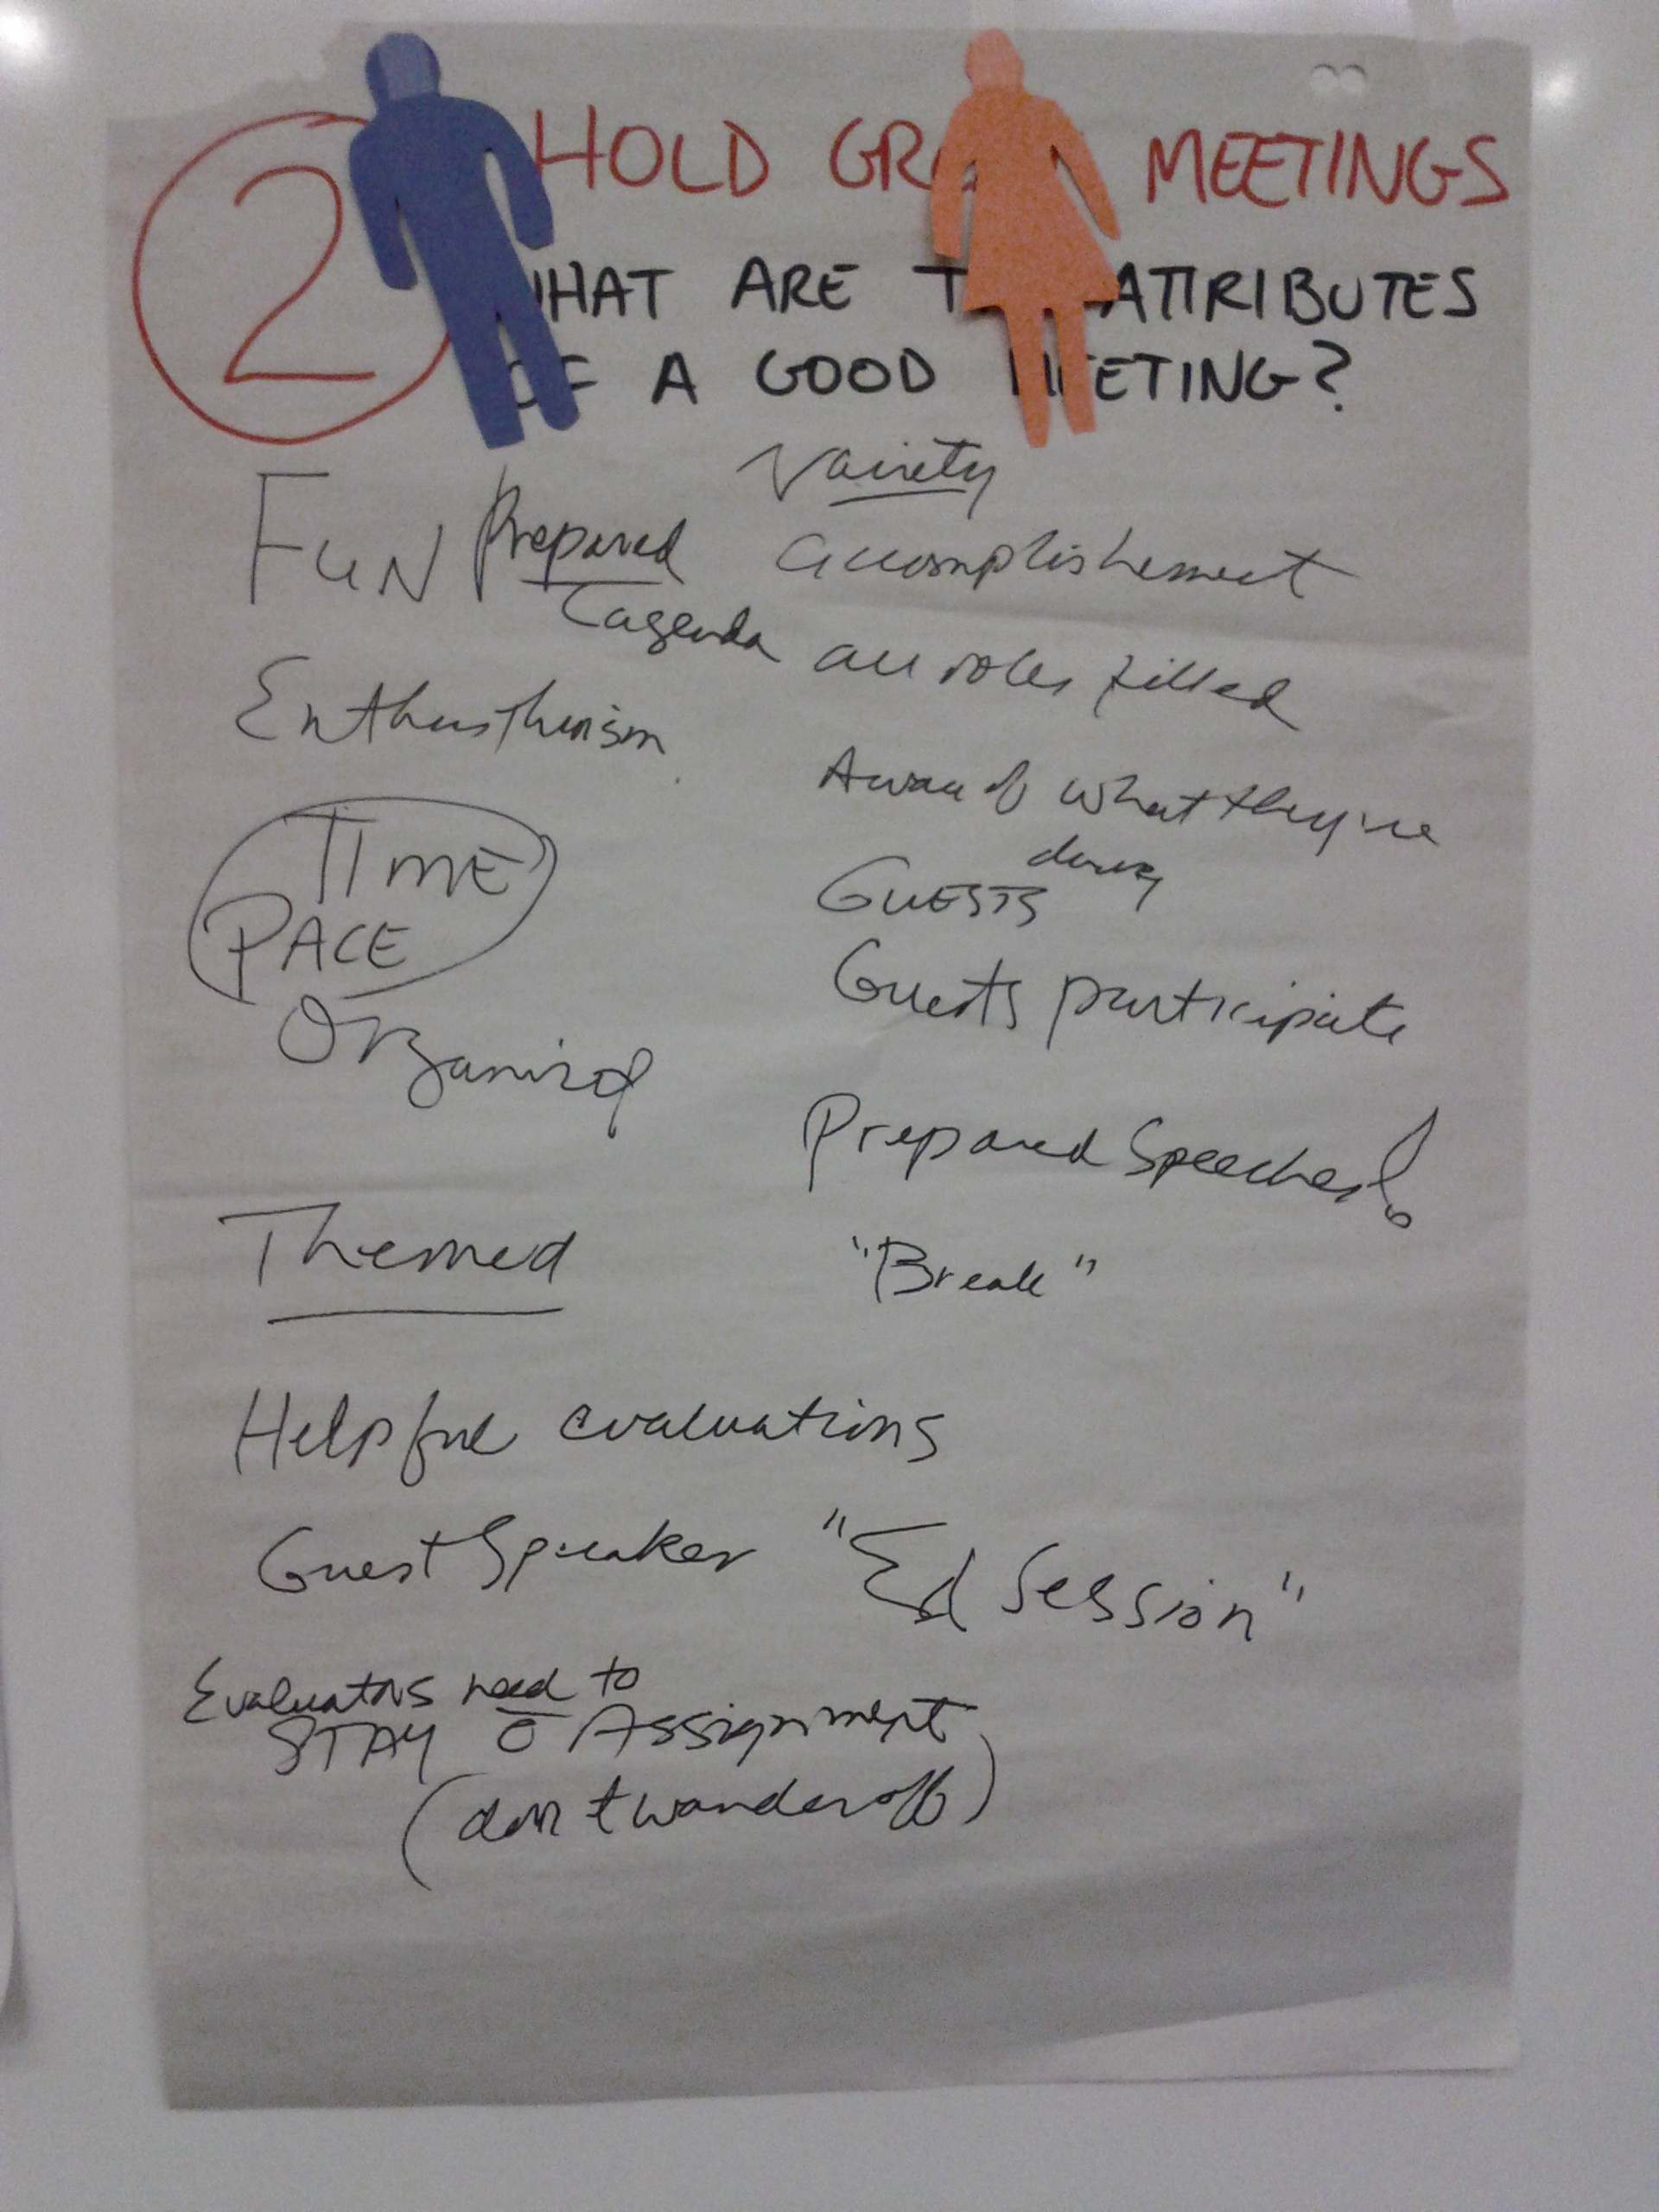 2
HOLD GR MEETINGS
HAT ARE T ATTRIBUTES
OF A GOOD MEETING?
Vairety
FUN Prepared accomplishement
agenda all roles filled
Enthusthorism
Aware of what they're
doing
TIME
PACE
GUESTS
Guests participate
Organized
Prepared Speeches!
Themed
"Break"
Helpful evaluations
Guest Speaker "Ed Session"
Evaluators need to
STAY Assignment
(don't wander off)